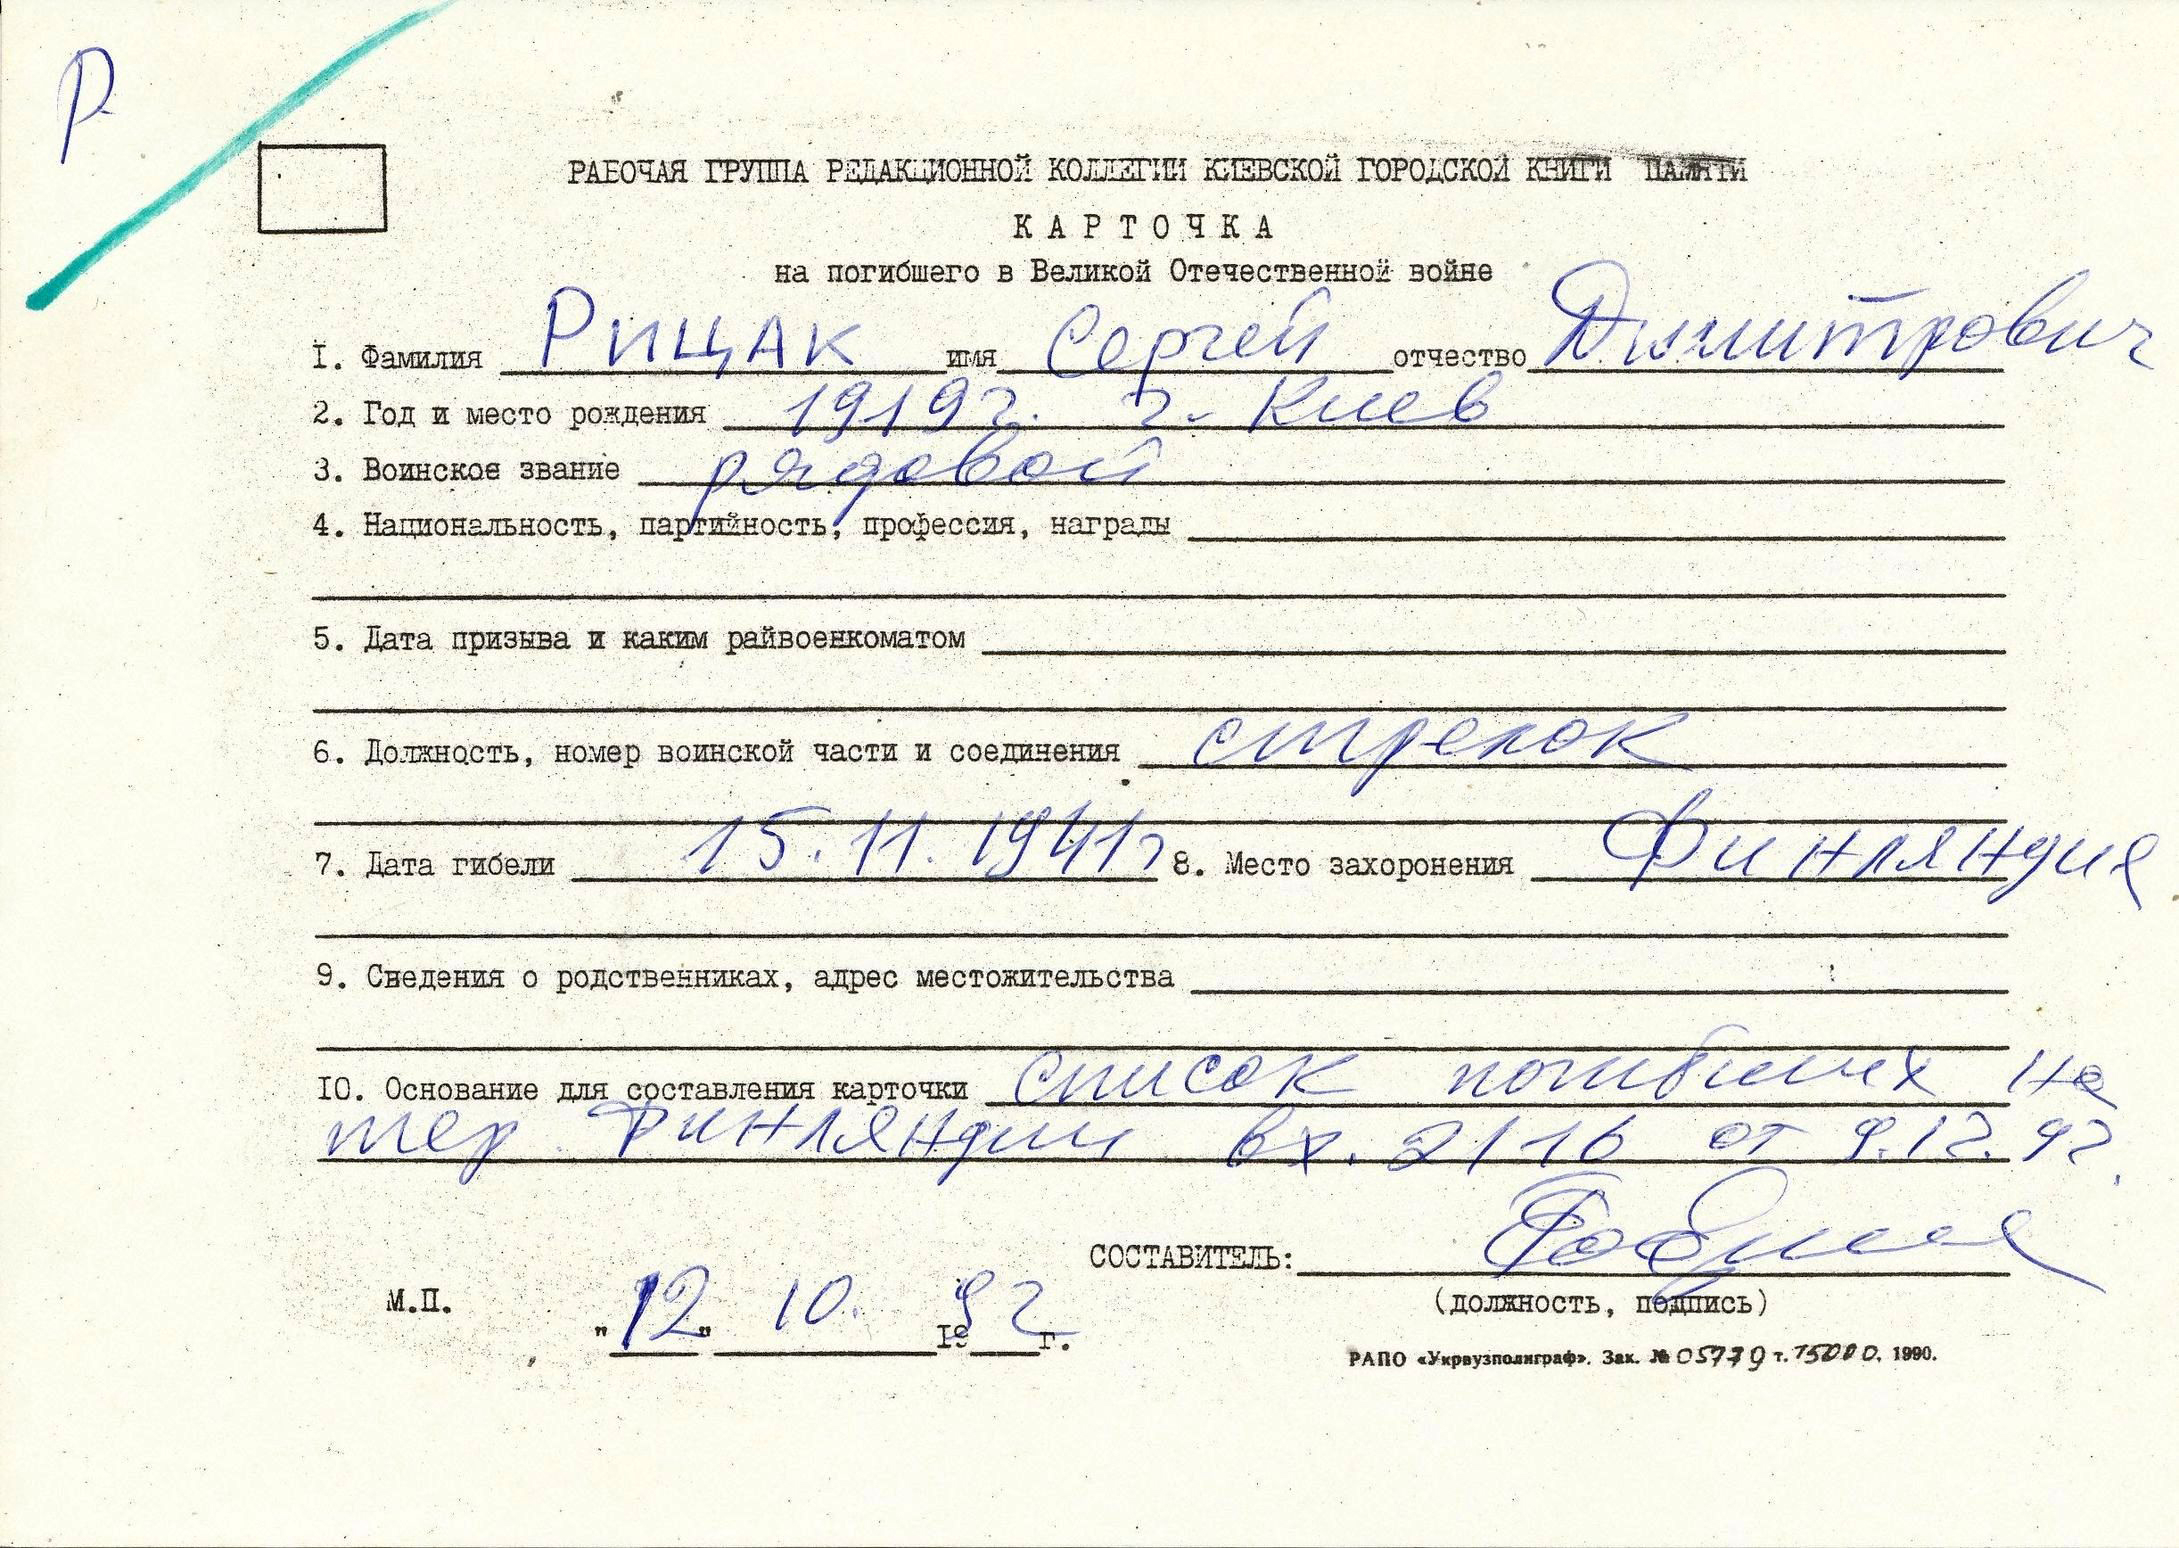 Р
РАБОЧАЯ ГРУППА РЕДАКЦИОННОЙ КОЛЛЕГИИ КИЕВСКОЙ ГОРОДСКОЙ КНИГИ ПАМЯТИ
КАРТОЧКА
на погибшего в Великой Отечественной войне
I. Фамилия РИЦАК имя Сергей отчество Димитрович
2. Год и место рождения 1919г. г. Киев
3. Воинское звание рядовой
4. Национальность, партийность, профессия, награды
5. Дата призыва и каким райвоенкоматом
6. Должность, номер воинской части и соединения стрелок
7. Дата гибели 15.11.1941г 8. Место захоронения Финляндия
9. Сведения о родственниках, адрес местожительства
IO. Основание для составления карточки список погибших на
тер. Финляндии вх. 2116 от 9.12.92.
СОСТАВИТЕЛЬ:
(должность, подпись)
М.П. "12" 10. 1992г.
РАПО «Укрвузполиграф». Зак. № 05779 т. 15000. 1990.